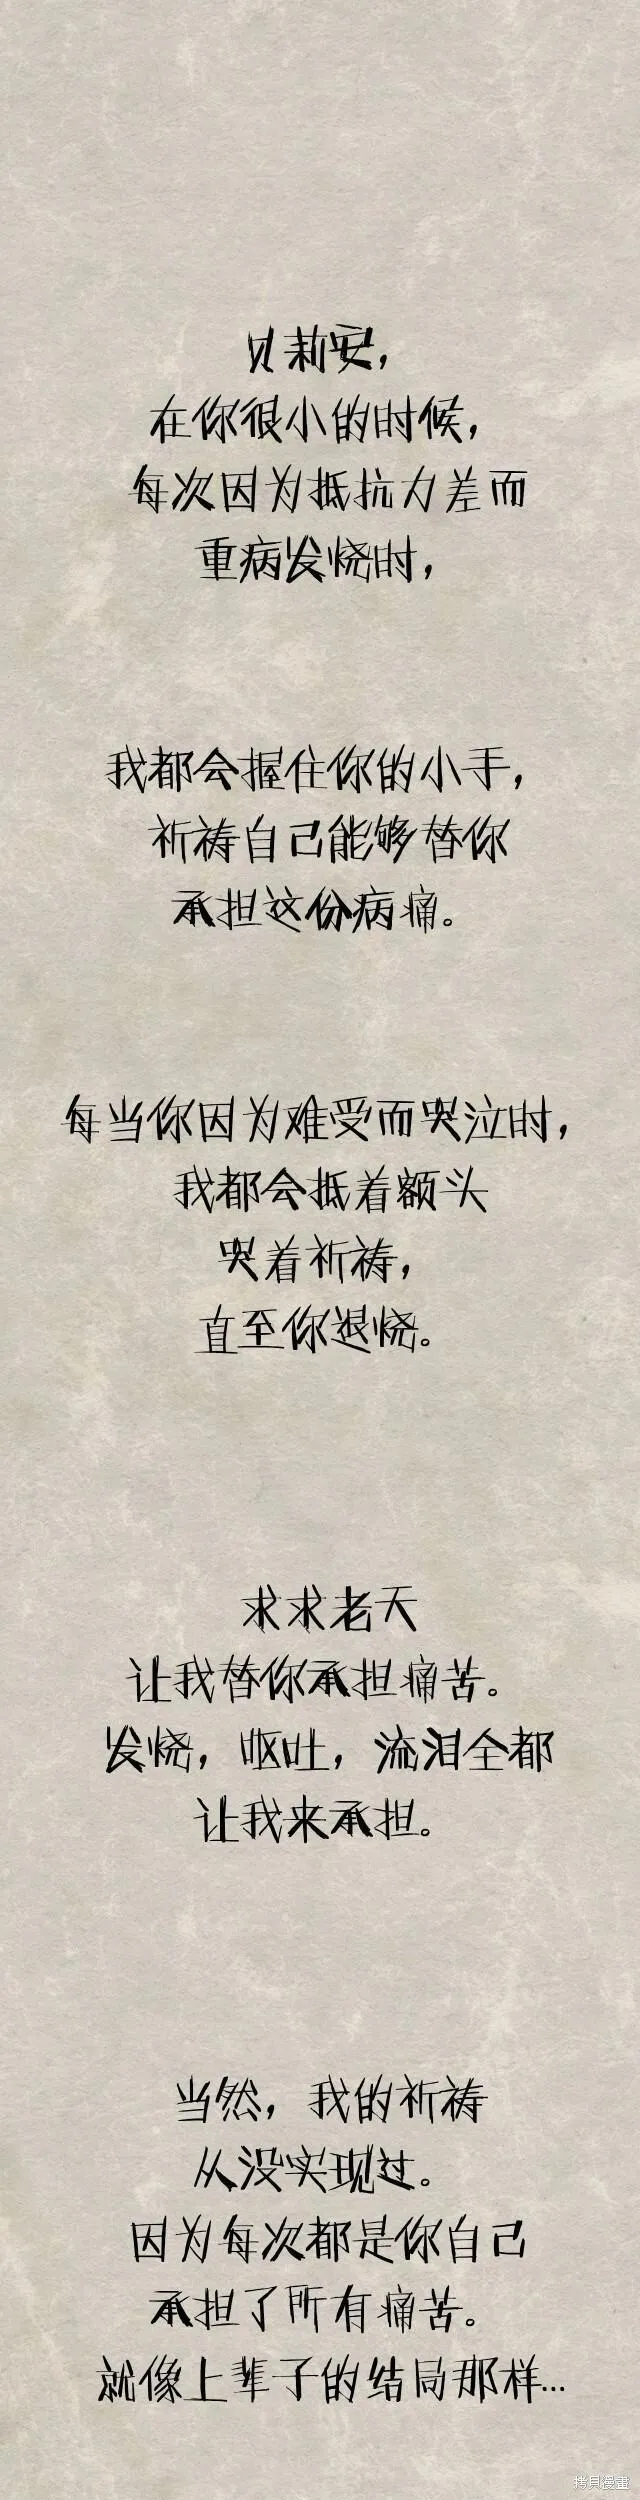 贝莉安，
在你很小的时候，
每次因为抵抗力差而
重病发烧时，
我都会握住你的小手，
祈祷自己能够替你
承担这份病痛。
每当你因为难受而哭泣时，
我都会抵着额头
哭着祈祷，
直至你退烧。
求求老天
让我替你承担痛苦。
发烧，呕吐，流泪全都
让我来承担。
当然，我的祈祷
从没实现过。
因为每次都是你自己
承担了所有痛苦。
就像上辈子的结局那样…
拷貝漫畫